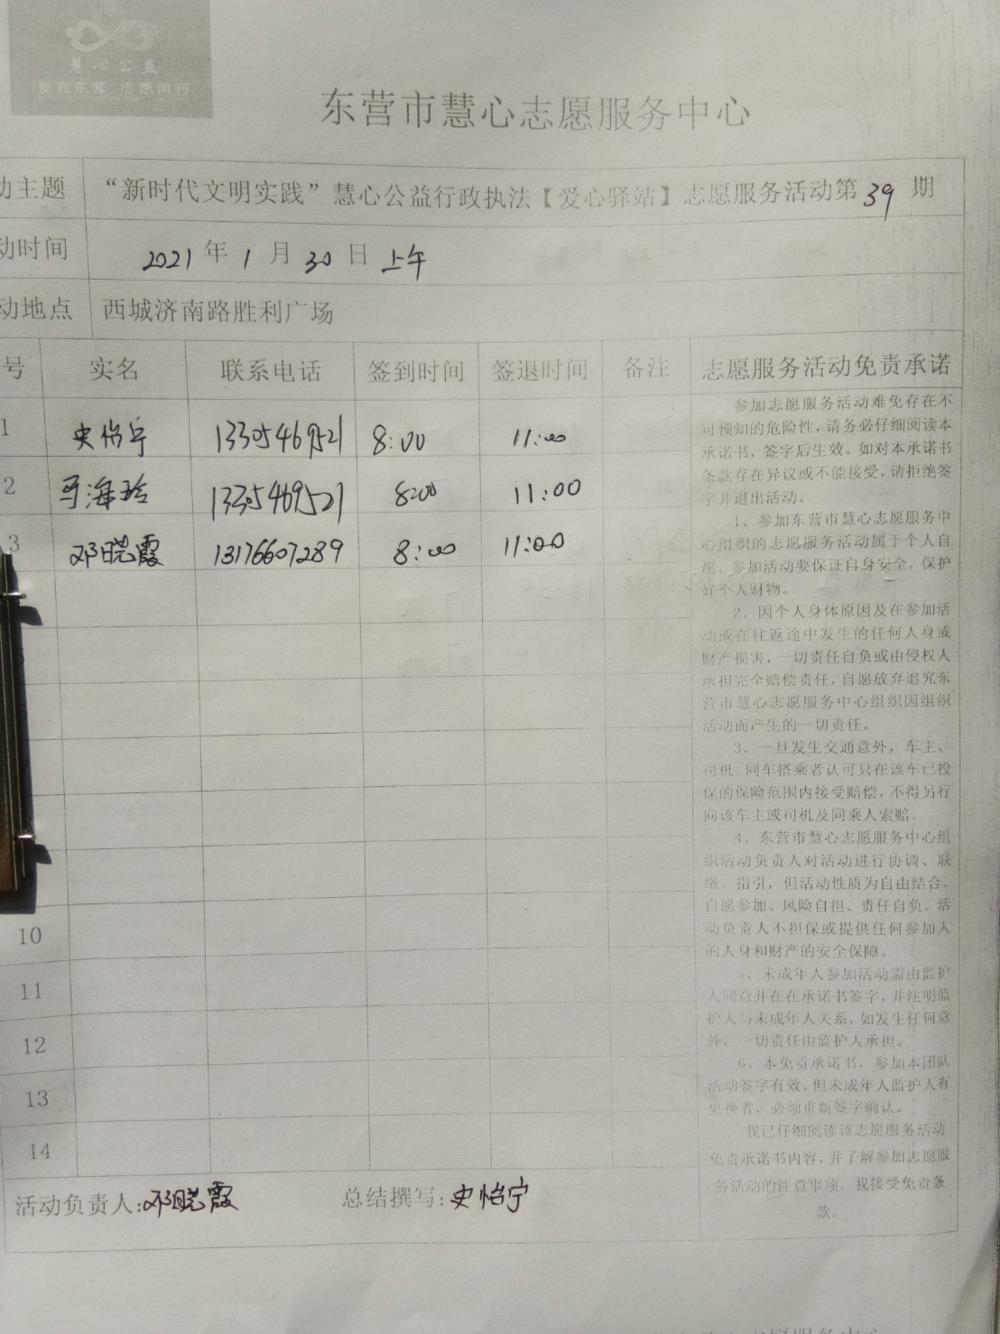 慧心公益
爱在东营 志愿同行
东营市慧心志愿服务中心
动主题 “新时代文明实践”慧心公益行政执法【爱心驿站】志愿服务活动第39期
动时间 2021年1月30日上午
动地点 西城济南路胜利广场
号 实名 联系电话 签到时间 签退时间 备注 志愿服务活动免责承诺
1 史怡宁 13305469521 8:00 11:00
2 马海玲 13305469521 8:00 11:00
3 邓晓霞 13176607289 8:00 11:00
10
11
12
13
14
参加志愿服务活动难免存在不
可预知的危险性,请务必仔细阅读本
承诺书,签字后生效。如对本承诺书
条款存在异议或不能接受,请拒绝签
字并退出活动。
1、参加东营市慧心志愿服务中
心组织的志愿服务活动属于个人自
愿,参加活动要保证自身安全,保护
好个人财物。
2、因个人身体原因及在参加活
动或在往返途中发生的任何人身或
财产损害,一切责任自负或由侵权人
承担完全赔偿责任,自愿放弃追究东
营市慧心志愿服务中心组织因组织
活动而产生的一切责任。
3、一旦发生交通意外,车主、
司机、同车搭乘者认可只在该车已投
保的保险范围内接受赔偿,不得另行
向该车主或司机及同乘人索赔。
4、东营市慧心志愿服务中心组
织活动负责人对活动进行协调、联
络、指引,但活动性质为自由结合、
自愿参加、风险自担、责任自负。活
动负责人不担保或提供任何参加人
的人身和财产的安全保障。
5、未成年人参加活动需由监护
人同意并在在承诺书签字,并注明监
护人与未成年人关系,如发生任何意
外,一切责任由监护人承担。
6、本免责承诺书,参加本团队
活动签字有效,但未成年人监护人有
更换者,必须重新签字确认。
我已仔细阅读该志愿服务活动
免责承诺书内容,并了解参加志愿服
务活动的注意事项,我接受免责条
款。
活动负责人:邓晓霞 总结撰写:史怡宁